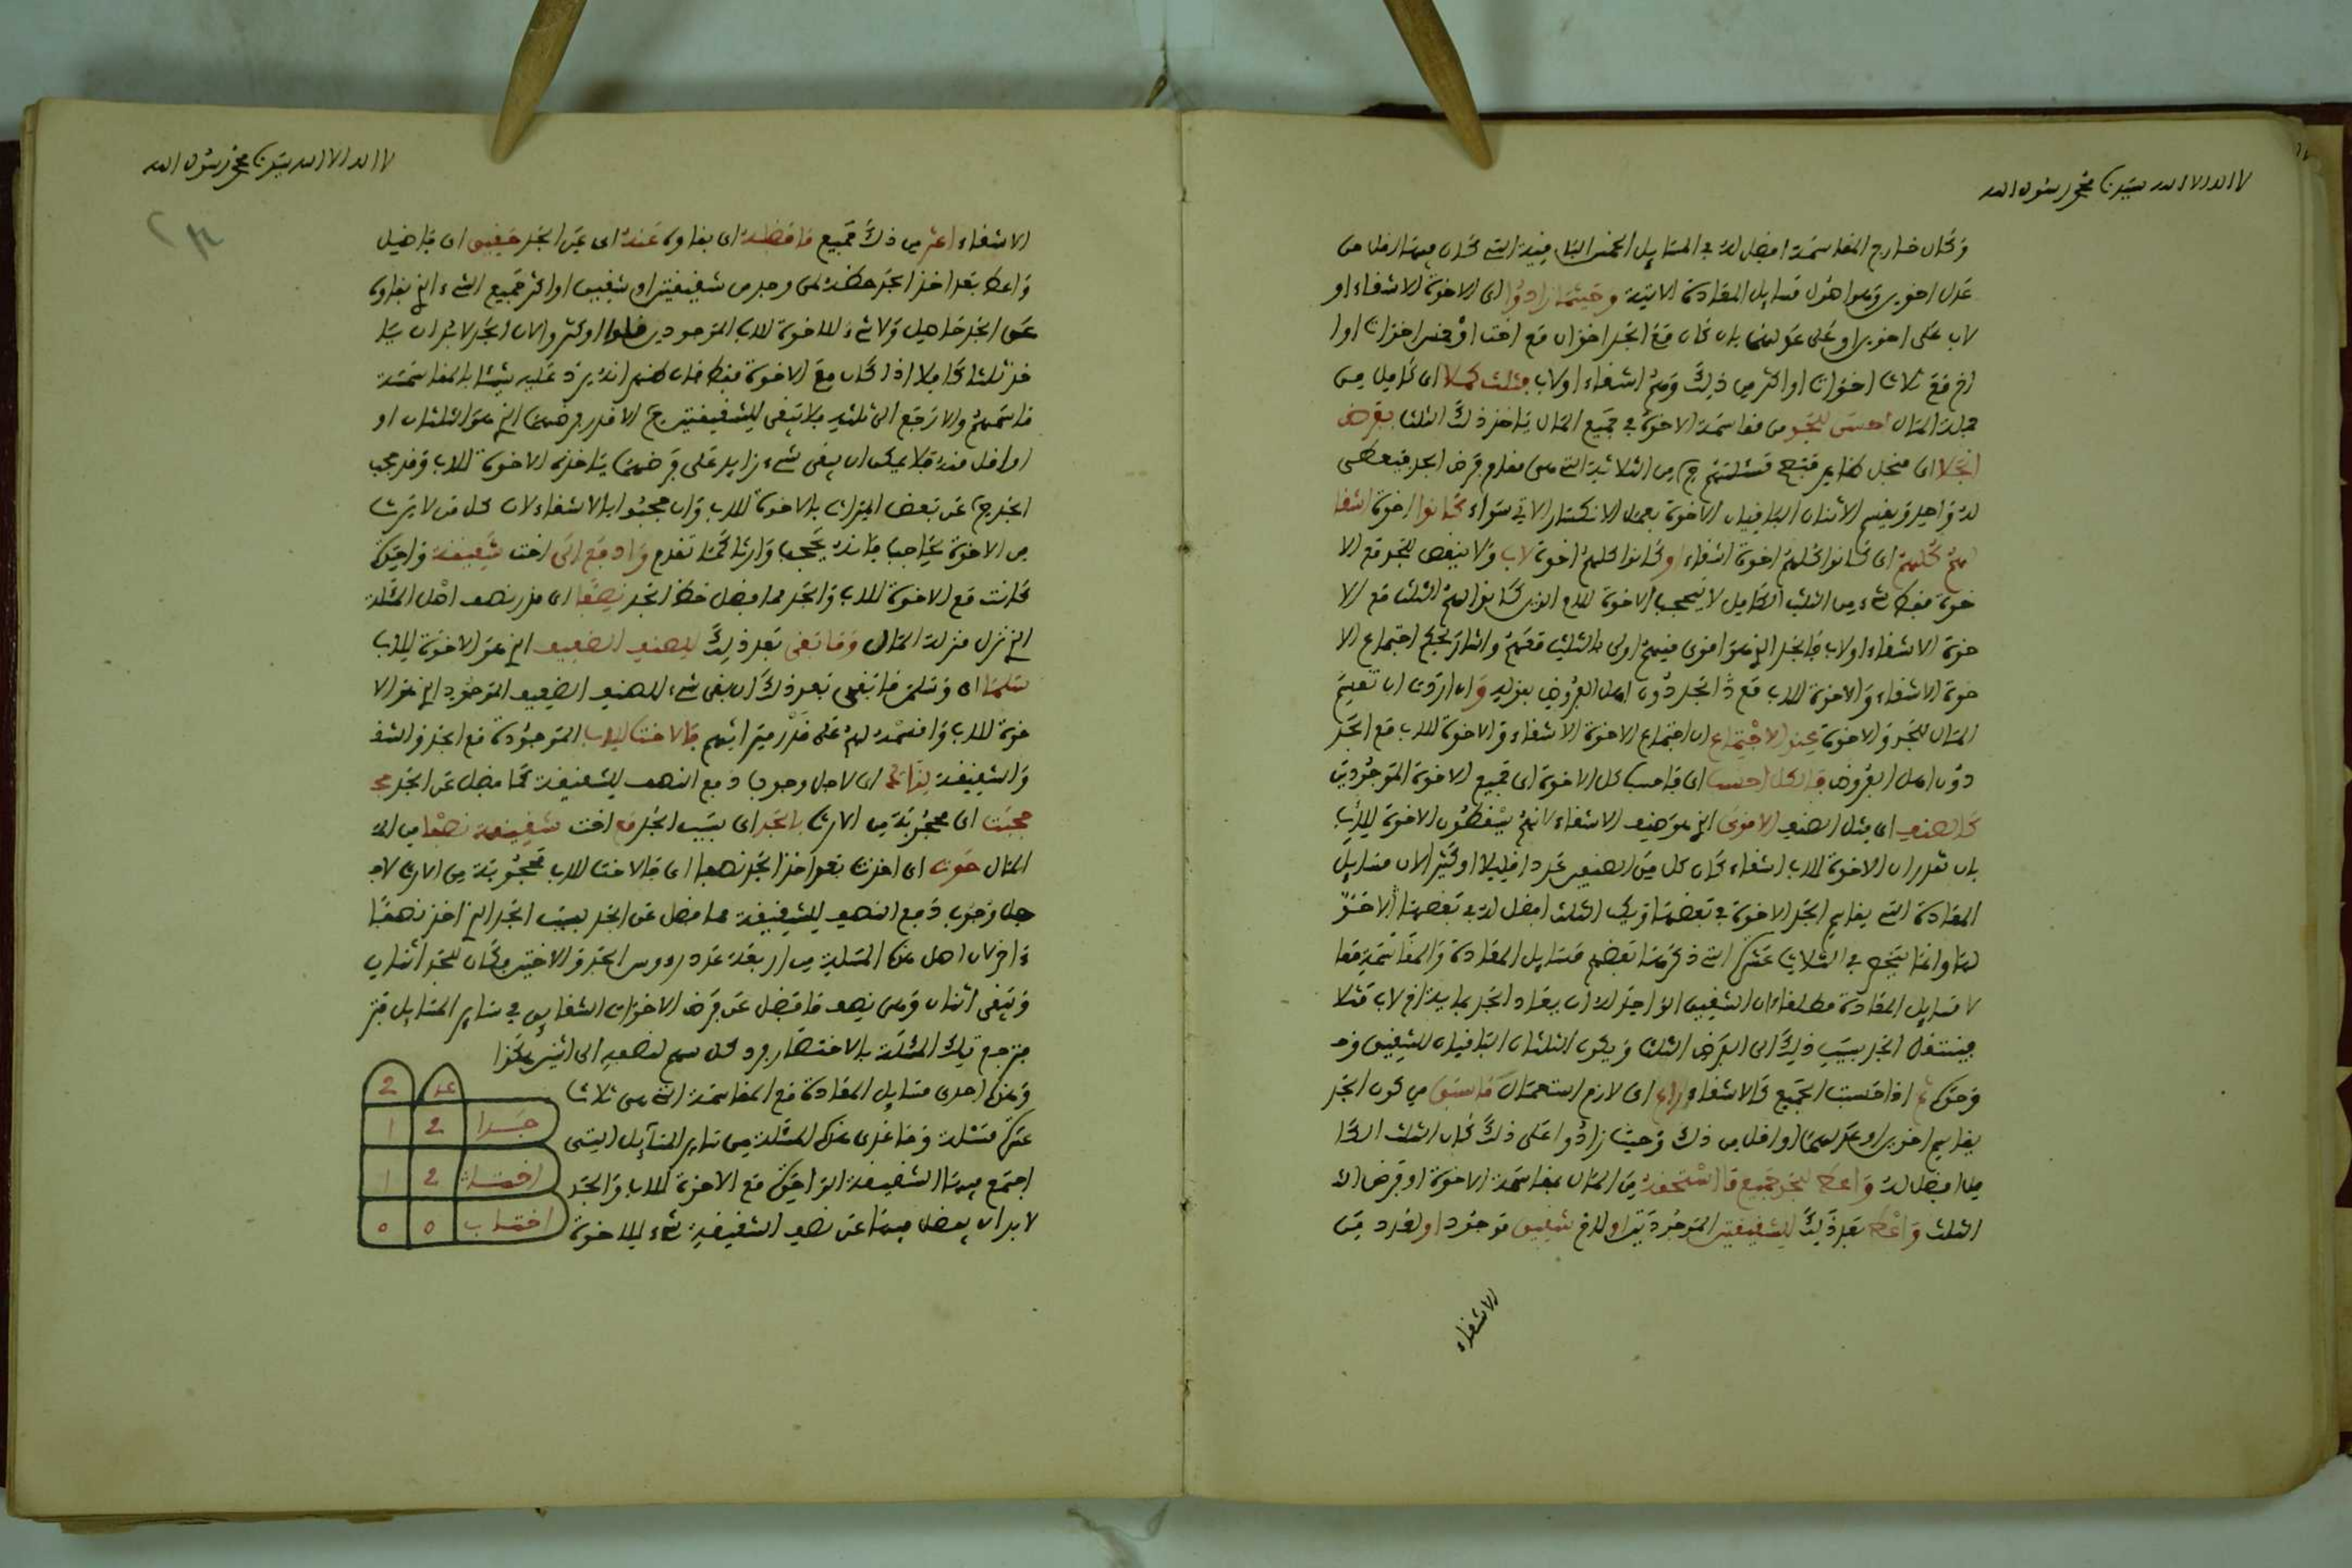 لا اله الا الله سيدنا محمد رسول الله
وكان خارج المقاسمة افضل له في المسايل الخمس الباقية التي كان فيها اقل من
عدل اخوين وهو اهون مسايل المعادة الاتية وحيثما زادوا اى الاخوة الاشقاء او
لاب على اخوين او على عدلهما بان كان مع الجد اخوان مع اخت او خمس اخوات او ا
خ مع ثلاث اخوات او اكثر من ذلك وهم اشقاء او لاب فثلث كملا اى كامل من
جملة المال احسن للجد من مقاسمة الاخوة في جميع المال ياخذ ذلك الثلث بفرض
انجلا اى منجل ظاهر فتصح مسئلتهم ح من الثلاثة التي هى مقام فرض الجد فيعطى
له واحد ويقسم الاثنان الباقيان الاخوة بعمل الانكسار الاتي سواء كانوا اخوة اشقا
هم كلهم اى كانوا كلهم اخوة اشقاء او كانوا كلهم اخوة لاب ولا ينقص للجد مع الا
خوة فقط شيء من الثلث الكامل لانه يحجب الاخوة للام الذين كانوا لهم الثلث مع الا
خوة الاشقاء او لاب فالجد الذي هو اقوى منهم اولى بالثلث معهم واشار لحكم اجتماع الا
خوة الاشقاء والاخوة للاب مع الجد دون اهل الفروض بقوله وان اردت ان تقسم
المال للجد والاخوة عند الاجتماع اى اجتماع الاخوة الاشقاء والاخوة للاب مع الجد
دون اهل الفروض فالكل احسب اى فاحسب كل الاخوة اى جميع الاخوة الموجودين
كالصنف اى مثل الصنف الاقوى الذي هو صنف الاشقاء كانهم يسقطون الاخوة للاب
بان تقدر ان الاخوة للاب اشقاء كان كل من الصنفين عددا قليلا او كثيرا لان مسايل
المعادة التي يقاسم الجد الاخوة في بعضها ويكون الثلث افضل له في بعضها الاخر
لها وانما ينحصر في الثلاث عشرة التي ذكرها بعضهم مسايل المعادة والمقاسمة معا
لا مسايل المعادة مطلقا لان الشقيق الواحد له ان يعاد الجد بماية اخ لاب مثلا
فينتقل الجد بسبب ذلك الى الفرض الثلث ويكون الثلثان الباقيان للشقيق وحد
وحده ثم اذا حسبت الجميع كالاشقاء راع اى لازم استعمال ما سبق من كون الجد
يقاسم اخوين او عدلهما او اقل من ذلك وحيث زادوا على ذلك كان الثلث الكا
مل افضل له واعط للجد جميع ما استحقه من المال بمقاسمة الاخوة او فرض الا
الثلث واعط بعد ذلك للشقيقتين الموجودتين او للاخ شقيق موجود او لعدد من
الاشقاء
لا اله الا الله سيدنا محمد رسول الله
الاشقاء اكثر من ذلك جميع ما فضل اى بقا وله عنه اى عن الجد حقيق اى فاضل
واعط بعد اخذ الجد حظه لمن وجد من شقيقتين او شقيق او اكثر جميع الشيء الذي بقا وله
عن الجد فاهل ولا شيء للاخوة للاب الموجودين قلوا او كثروا لان الجد لا بد ان يا
خذ ثلثا كاملا اذا كان مع الاخوة فقط
فاسمهم والا رجع الى ثلثه فلا يبقى للشقيقتين ح الا قدر فرضهما الذي هو الثلثان او
او اقل منه فلا يمكن ان يبقى شيء زايد على فرضهما ياخذه الاخوة للاب وقد حجب
الجد ح عن بعض الميراث بالاخوة للاب وان حجبوا بالاشقاء لان كل من لا يرث
من الاخوة حاجبا فانه يحجب وارثا كما تقدم وادفع الى اخت شقيقة واحدة
كانت مع الاخوة للاب والجد مما فضل حظ الجد نصفا اى قدر نصف اهل المسئلة
الذي نزل منزلة المال وما بقى بعد ذلك للصنف الضعيف الذي هو الاخوة للاب
سلما اى وسلم ما بقى بعد ذلك ان بقى شيء للصنف الضعيف الموجود الذي هو الا
خوة للاب واقسمه لهم على قدر ميراثهم فالاخت للاب الموجودة مع الجد والشقـ
والشقيقة لذاك اى لاجل وجوب دفع النصف للشقيقة مما فضل عن الجد محـ
حجبت اى محجوبة من الارث بالجد اى بسبب الجد مع اخت شقيقة نصفا من الـ
المال حوت اى اخذت بعد اخذ الجد نصفها اى فالاخت للاب محجوبة من الارث لا
جل وجوب دفع النصف للشقيقة مما فضل عن الجد بسبب الجد الذي اخذ نصفا
اخر لان اصل هذه المسئلة من اربعة عدد رءوس الجد والاختين وكان للجد اثنان
وتبقى اثنان وهى نصف ما فضل عن فرض الاخوات الشقايق في ساير المسايل فتر
فترجع تلك المسئلة بالاختصار ورد كل سهم لنصفه الى اثنين هكذا
وهذه احدى مسايل المعادة مع المقاسمة التي هى ثلاث
عشرة مسئلة وما عدى هذه المسئلة من ساير المسايل التي
اجتمع فيها الشقيقة الواحدة مع الاخوة للاب والجد
لا بد ان يفضل فيها عن نصف الشقيقة شيء للاخوة
عد 2
جد 2 1
اخت 2 1
اخت لاب 0 0